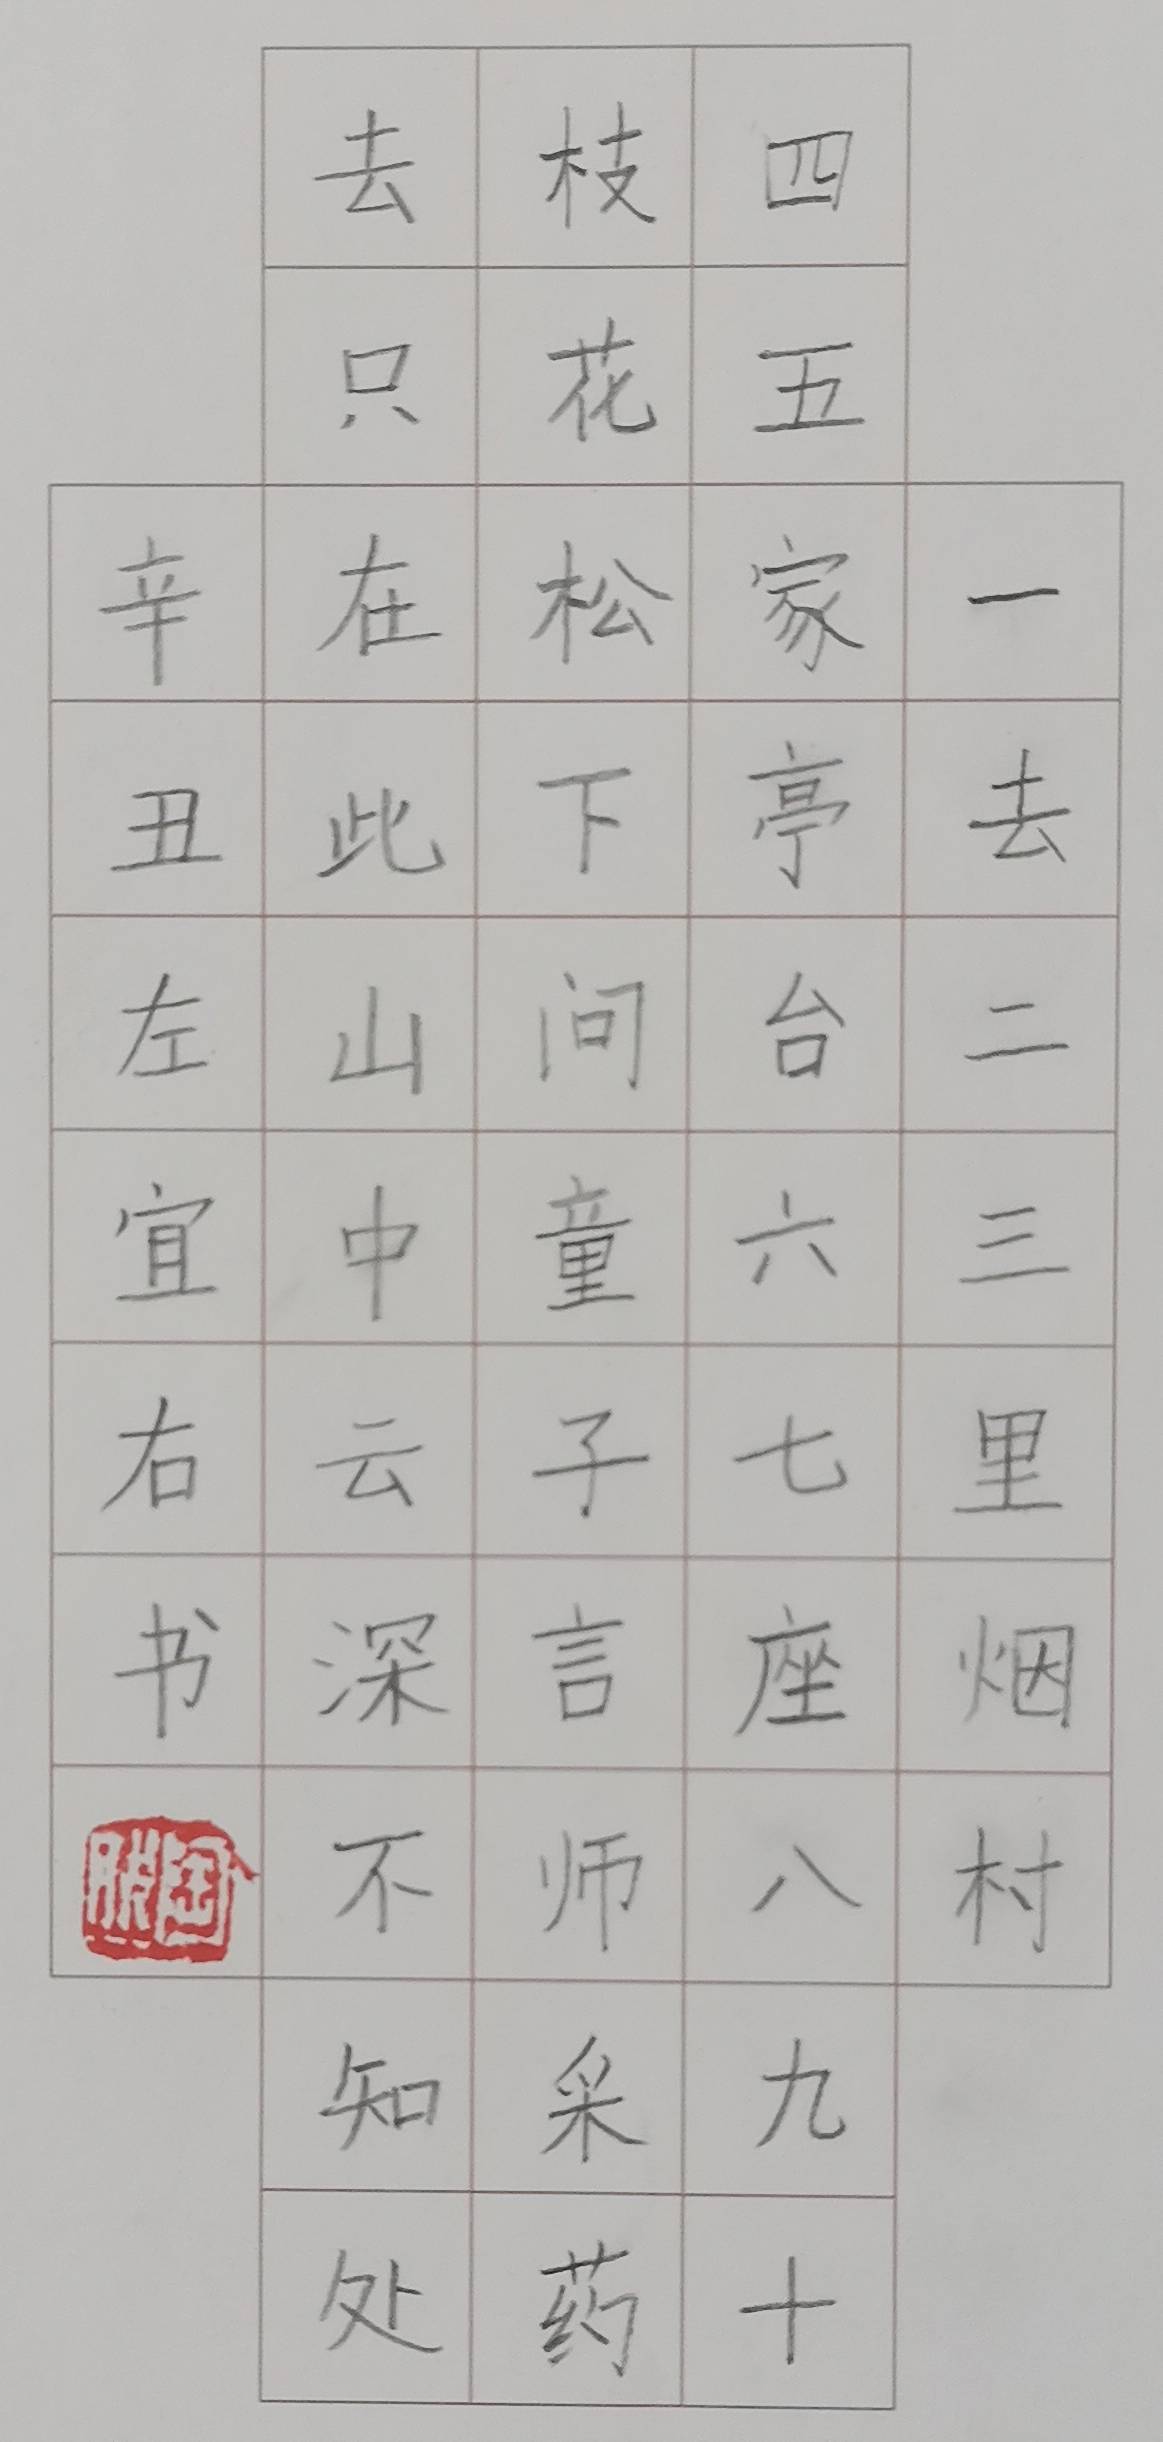 一去二三里烟村
四五家亭台六七座八九十
枝花松下问童子言师采药
去只在此山中云深不知处
辛丑左宜右书